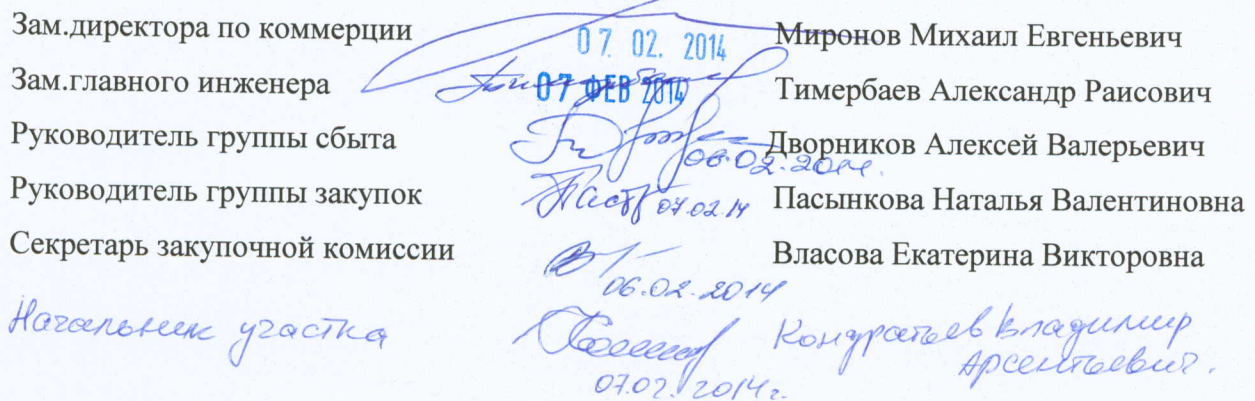 Зам.директора по коммерции 07. 02. 2014 Миронов Михаил Евгеньевич
Зам.главного инженера 07 ФЕВ 2014 Тимербаев Александр Раисович
Руководитель группы сбыта 06.02.2014. Дворников Алексей Валерьевич
Руководитель группы закупок 07.02.14 Пасынкова Наталья Валентиновна
Секретарь закупочной комиссии 06.02.2014 Власова Екатерина Викторовна
Начальник участка 07.02.2014г. Кондратьев Владимир
Арсентьевич.